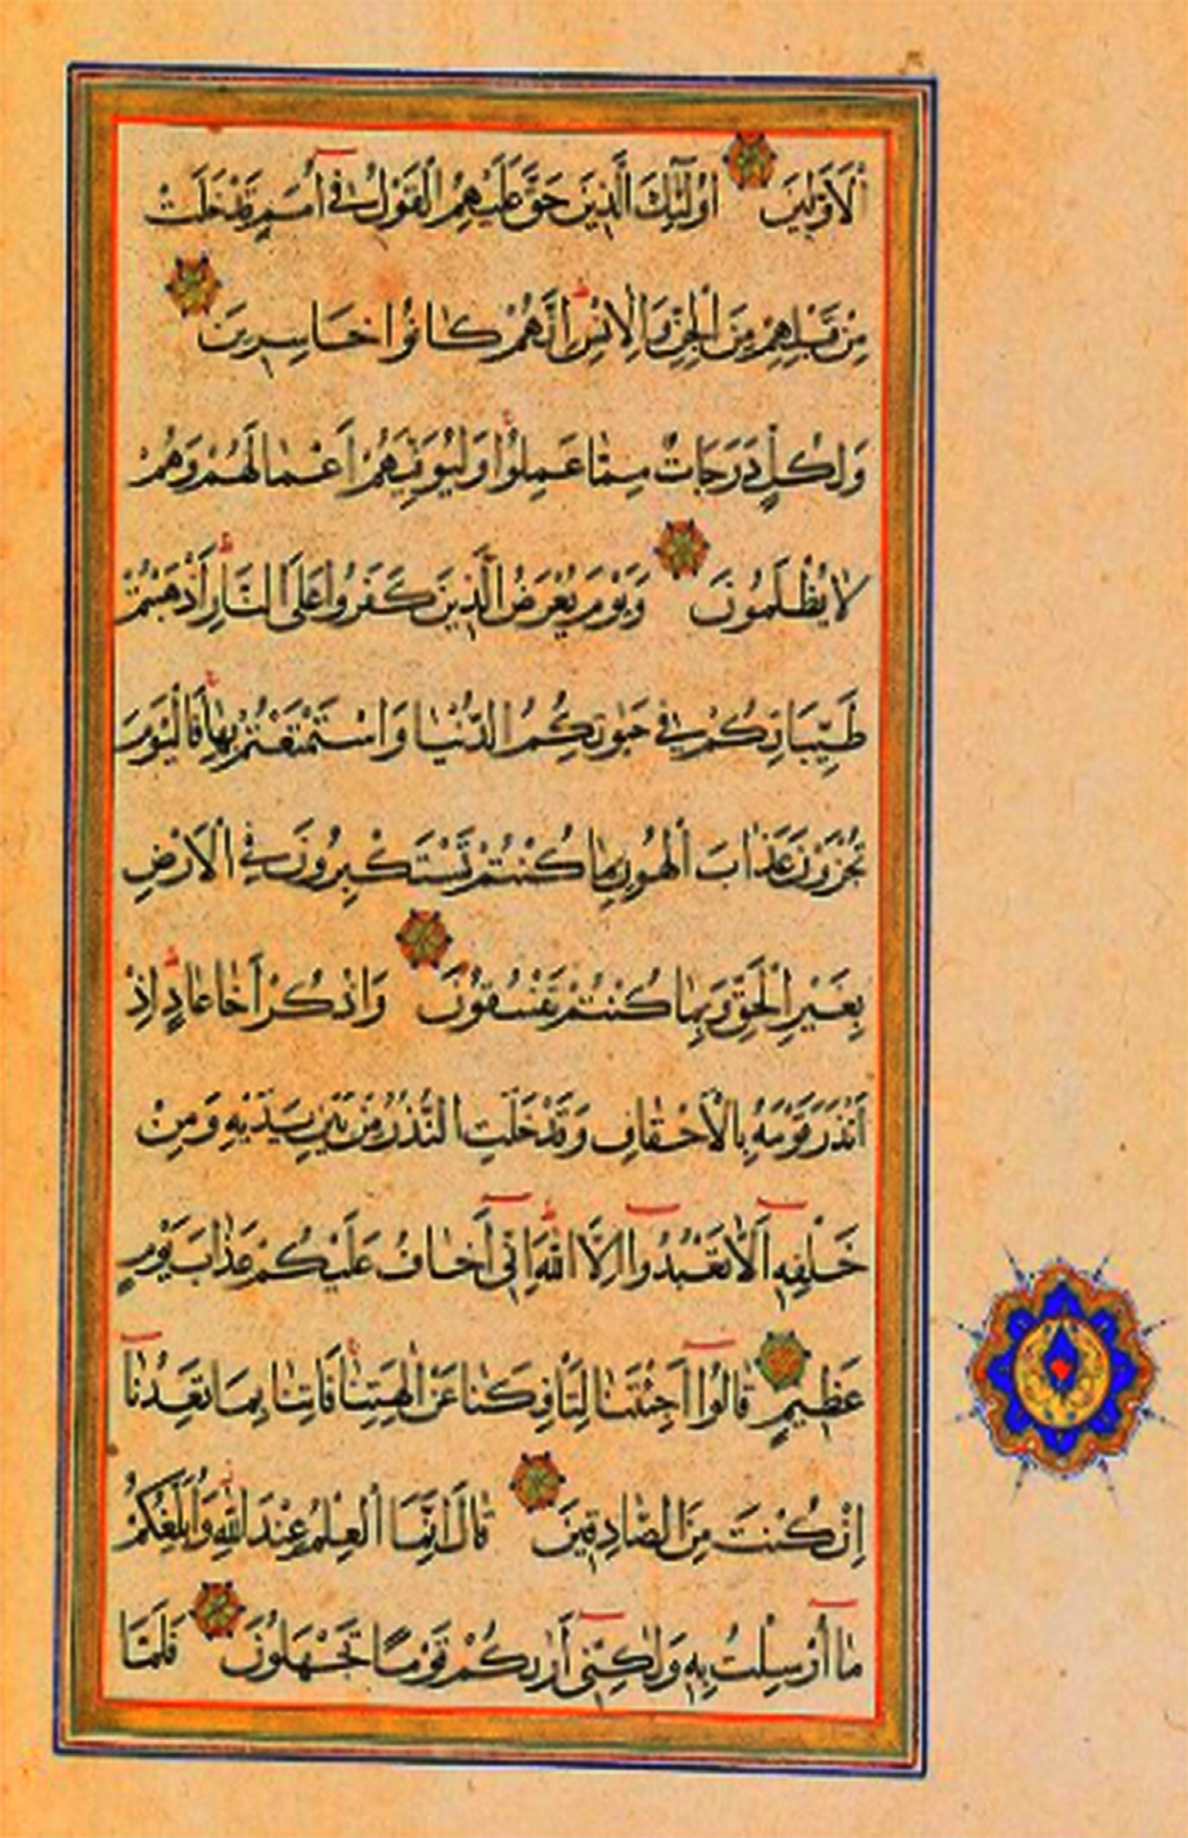 اَلْاَوَّلِينَ اُولٰٓئِكَ الَّذِينَ حَقَّ عَلَيْهِمُ الْقَوْلُ فِي اُمَمٍ قَدْ خَلَتْ
مِنْ قَبْلِهِمْ مِنَ الْجِنِّ وَالْاِنْسِ اِنَّهُمْ كَانُوا خَاسِرِينَ
وَلِكُلٍّ دَرَجَاتٌ مِمَّا عَمِلُوا وَلِيُوَفِّيَهُمْ اَعْمَالَهُمْ وَهُمْ
لَا يُظْلَمُونَ وَيَوْمَ يُعْرَضُ الَّذِينَ كَفَرُوا عَلَى النَّارِ اَذْهَبْتُمْ
طَيِّبَاتِكُمْ فِي حَيٰوتِكُمُ الدُّنْيَا وَاسْتَمْتَعْتُمْ بِهَا فَالْيَوْمَ
تُجْزَوْنَ عَذَابَ الْهُونِ بِمَا كُنْتُمْ تَسْتَكْبِرُونَ فِي الْاَرْضِ
بِغَيْرِ الْحَقِّ وَبِمَا كُنْتُمْ تَفْسُقُونَ وَاذْكُرْ اَخَا عَادٍ اِذْ
اَنْذَرَ قَوْمَهُ بِالْاَحْقَافِ وَقَدْ خَلَتِ النُّذُرُ مِنْ بَيْنِ يَدَيْهِ وَمِنْ
خَلْفِهِ اَلَّا تَعْبُدُوا اِلَّا اللّٰهَ اِنِّي اَخَافُ عَلَيْكُمْ عَذَابَ يَوْمٍ
عَظِيمٍ قَالُوا اَجِئْتَنَا لِتَأْفِكَنَا عَنْ اٰلِهَتِنَا فَاْتِنَا بِمَا تَعِدُنَا
اِنْ كُنْتَ مِنَ الصَّادِقِينَ قَالَ اِنَّمَا الْعِلْمُ عِنْدَ اللّٰهِ وَاُبَلِّغُكُمْ
مَا اُرْسِلْتُ بِهِ وَلٰكِنِّي اَرٰيكُمْ قَوْمًا تَجْهَلُونَ فَلَمَّا